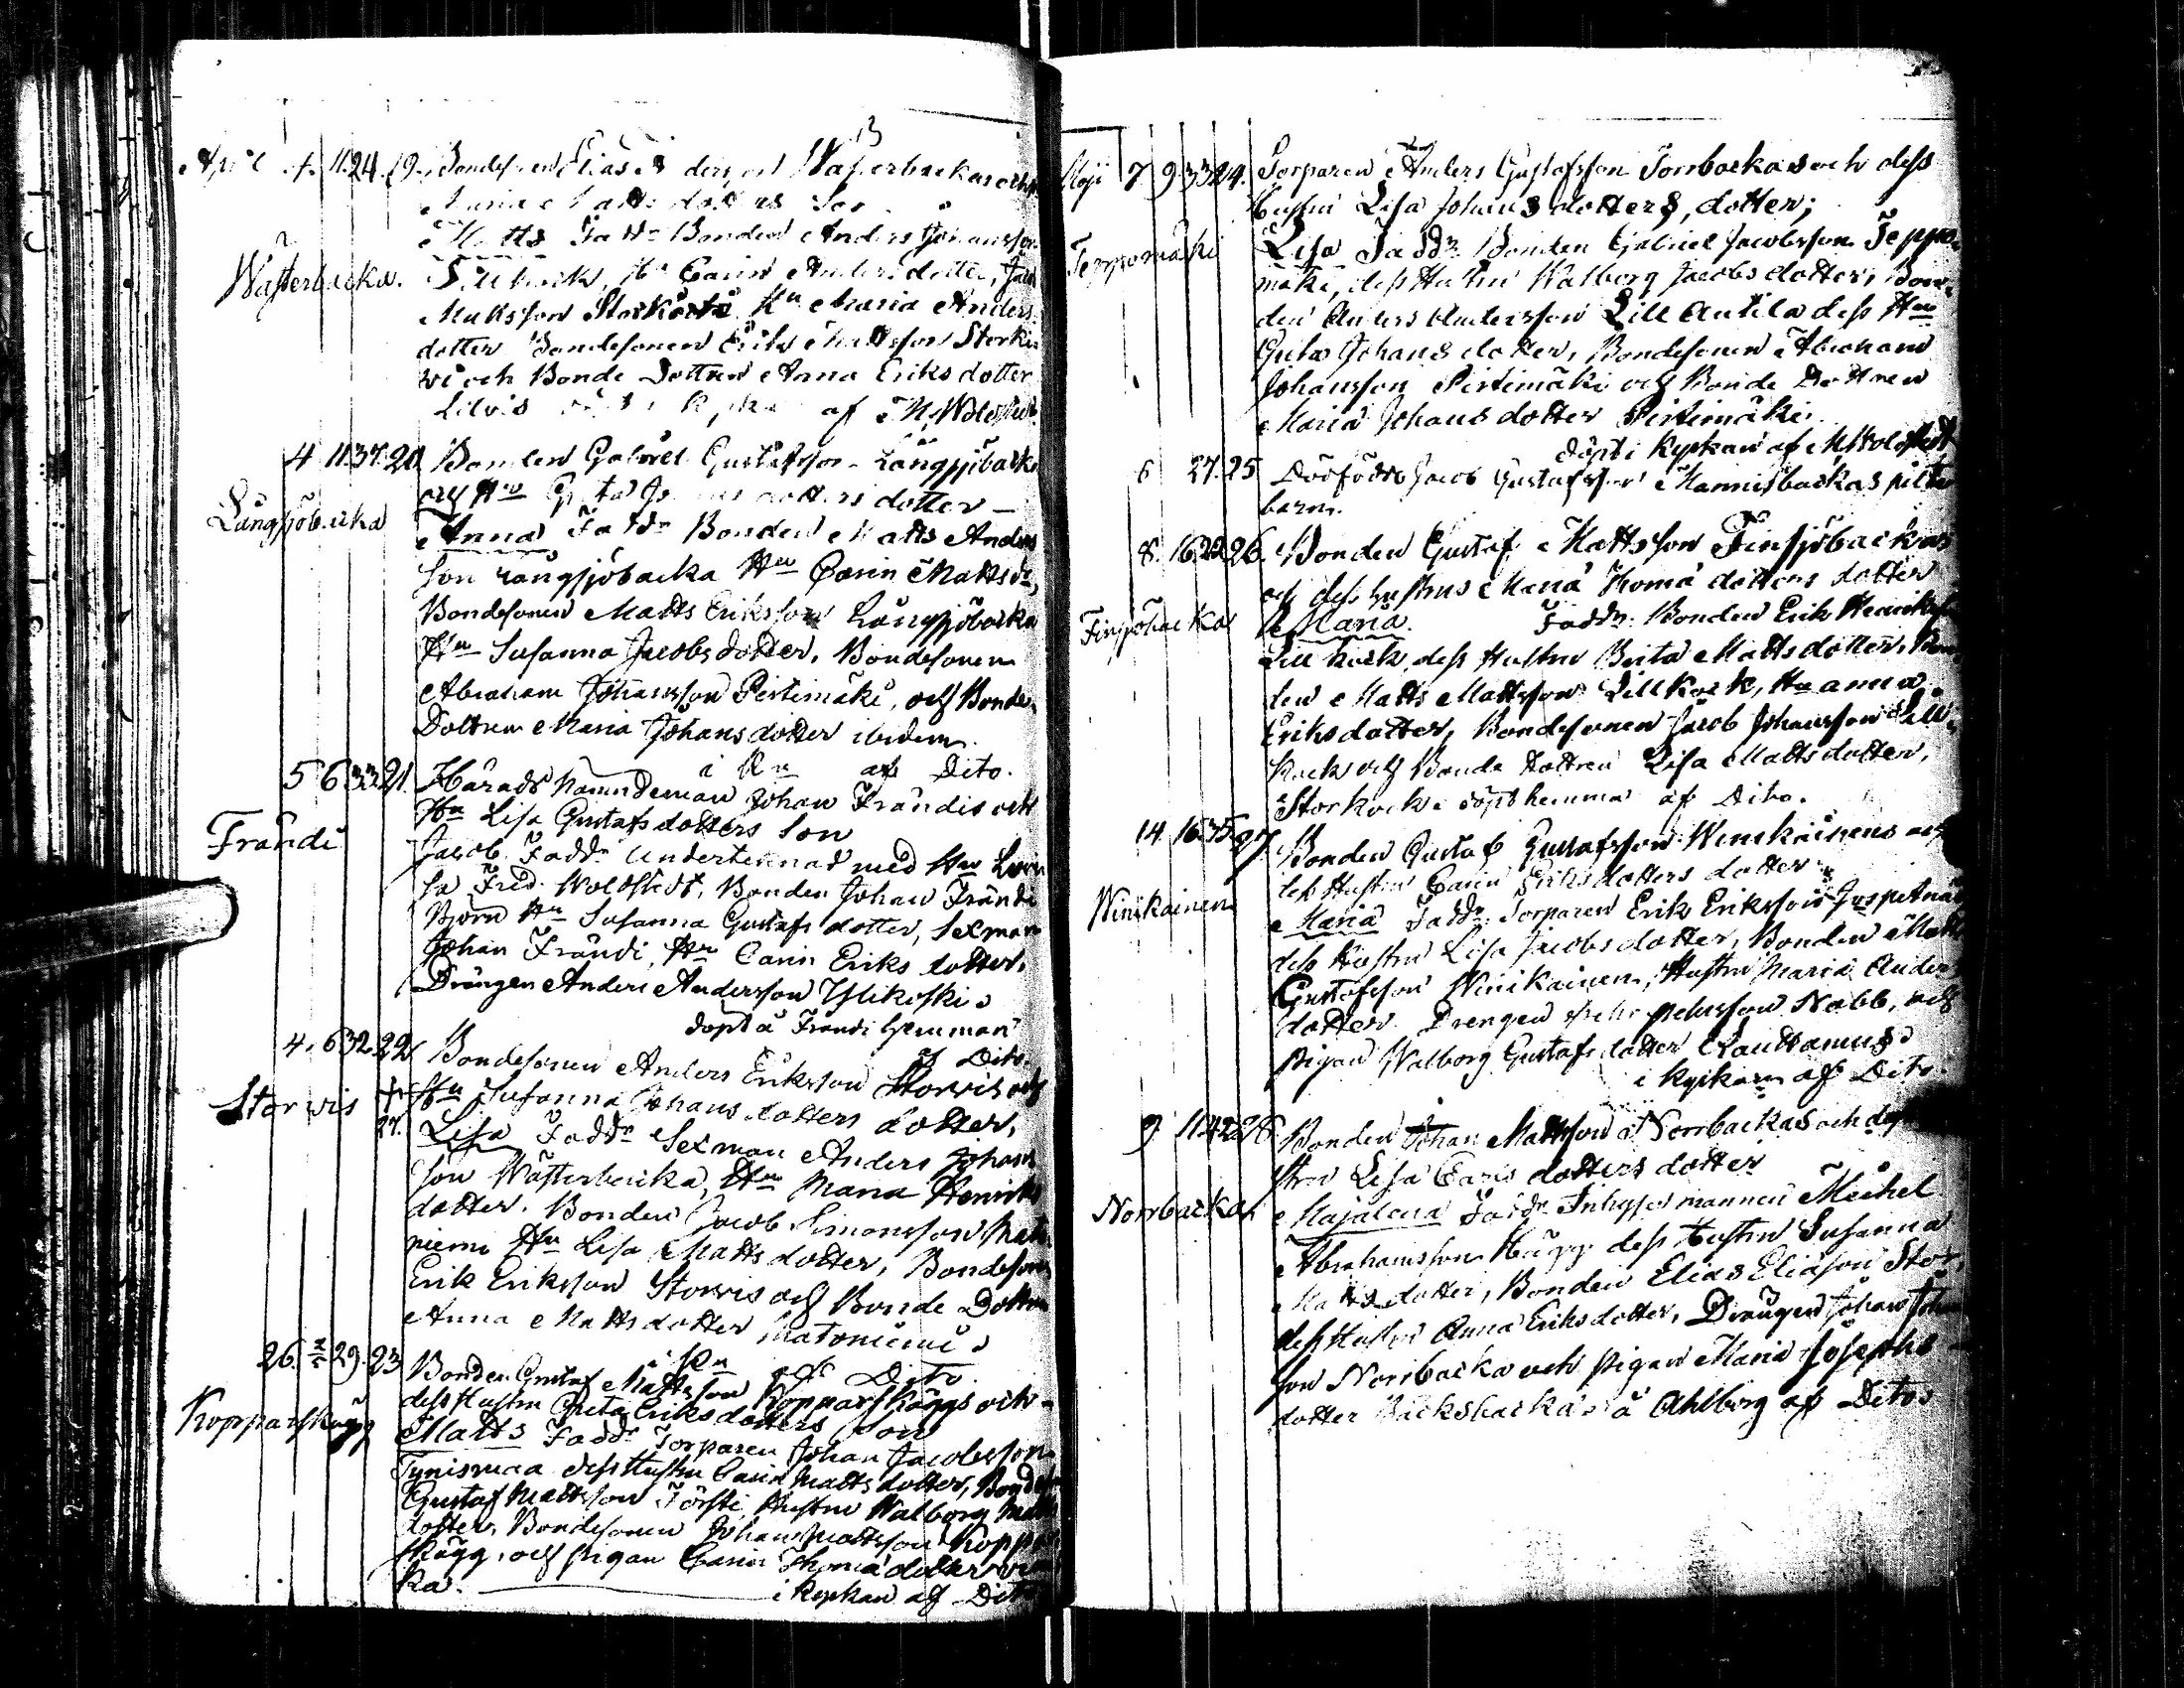 13
April 4. 11. 24. 19. Bondesonen Elias Wästerbackas och
Maria Matts dotters Son
Matts Fadd. Bonden Anders Johansson
Wästerbacka. Hu Carin Anders dotter,
Mattsson Storkorte Hu Maria Anders
dotter Bondesonen Erik Mattsson
och Bonde Dottren Anna Eriks dotter
Lilvis af M. Wolofstedt
4 11 37. 20 Bonden Gabriel Gustafsson Långsjöbacka
och Hu Greta dotters dotter
Långsjöbacka
Anna Fadd. Bonden Matts Anders
son Långsjöbacka Hu Carin Matts dr,
Bondesonen Matts Eriksson Långsjöbacka
Hu Susanna Jacobs dotter, Bondesonen
Abraham Johansson Pirtimäki, och Bonde
Dottren Maria Johans dotter ibidem
i Ku af Dito.
5 6 33 21. Härads nämndeman Johan Frändis och
Hu Lisa Gustafs dotters Son
Frändi
Jacob Fadd. Undertecknad med Hu Lovi
sa Fred. Woldstedt, Bonden Johan Frändi
Björn Hu Susanna Gustafs dotter, Sexman
Johan Frändi, Hu Carin Eriks dotter,
Drängen Anders Andersson Ylikoski
döpt å Frändi hemman
af Dito.
4. 6 32. 22 Bondesonen Anders Eriksson Storvis och
Storvis + Hu Susanna Johans dotters dotter,
27. Lisa Fadd. Sexman Anders Johans
son Wästerbacka, Hu Maria Henriks
dotter. Bonden Jacob Simonsson Mato
niemi Hu Lisa Matts dotter, Bondeson
Erik Eriksson Storvis och Bonde Dottren
Anna Matts dotter Matoniemi
i Ku af Dito.
26. 29. 23 Bonden Gustaf Mattsson Kopparskäggs och
dess Hustru Greta Eriks dotters Son
Kopparskägg
Matts Fadd. Torparen Johan Jacobsson
Tynismaa dess Hustru Carin Matts dotter, Bonden
Gustaf Mattsson Försti Hustru Walborg Matts
dotter, Bondesonen Johan Mattsson Koppar
skägg, och pigan Carin Thoma dotter
ka i kyrkan af Dito
Maji 7 9 33 24. Torparen Anders Gustafsson Torrbackas och dess
hustru Lisa Johans dotters, dotter;
Teppomäki
Lisa Fadd. Bonden Gabriel Jacobsson Teppo
mäki, dess Hustru Walborg Jacobs dotter, Bon
den Anders Andersson Lill Antila dess Hu
Greta Johans dotter, Bondesonen Abraham
Johansson Pirtimäki och Bonde Dottren
Maria Johans dotter Pirtimäki
döpt i Kyrkan af M. Wolofstedt
6 27. 25 Dödfödde Jacob Gustafsson Mannisbackas pilte
barn.
8. 16 22 26. Bonden Gustaf Mattsson Finsjöbackas
och dess hustrus Maria Thoma dotters dotter
Finsjöbacka
Maria. Fadd. Bonden Erik Henriksson
Lill kock dess Hustru Brita Matts dotter, Bon
den Matts Mattsson Lill Kock, Hu Anna
Eriks dotter, Bondesonen Jacob Johansson Lill
kock och Bonde Dottren Lisa Matts dotter,
Storkock döpt hemma af Dito.
14. 16 35 27. Bonden Gustaf Gustafsson Winikainens och
dess Hustru Carin Eriks dotters dotter
Winikainen
Maria Fadd. Torparen Erik Eriksson
dess Hustru Lisa Jacobs dotter, Bonden Matts
Gustafsson Winikainen, Hustru Maria Anders
dotter. Drengen Pehr Pehrsson Nabb, och
pigan Walborg Gustafs dotter Lauttamus
i kyrkan af Dito.
9 11 42 28 Bonden Johan Mattsson Norrbackas och dess
Hustru Lisa dotters dotter
Norrbacka
Majalena Fadd. Inhyses mannen Michel
Abrahamsson Hägg dess Hustru Susanna
Matts dotter, Bonden Elias Eliasson Stor
dess Hustru Anna Eriks dotter, Drängen Johan Johans
son Norrbacka och pigan Maria Josephs
dotter Backsbacka å Ahlborg af Dito